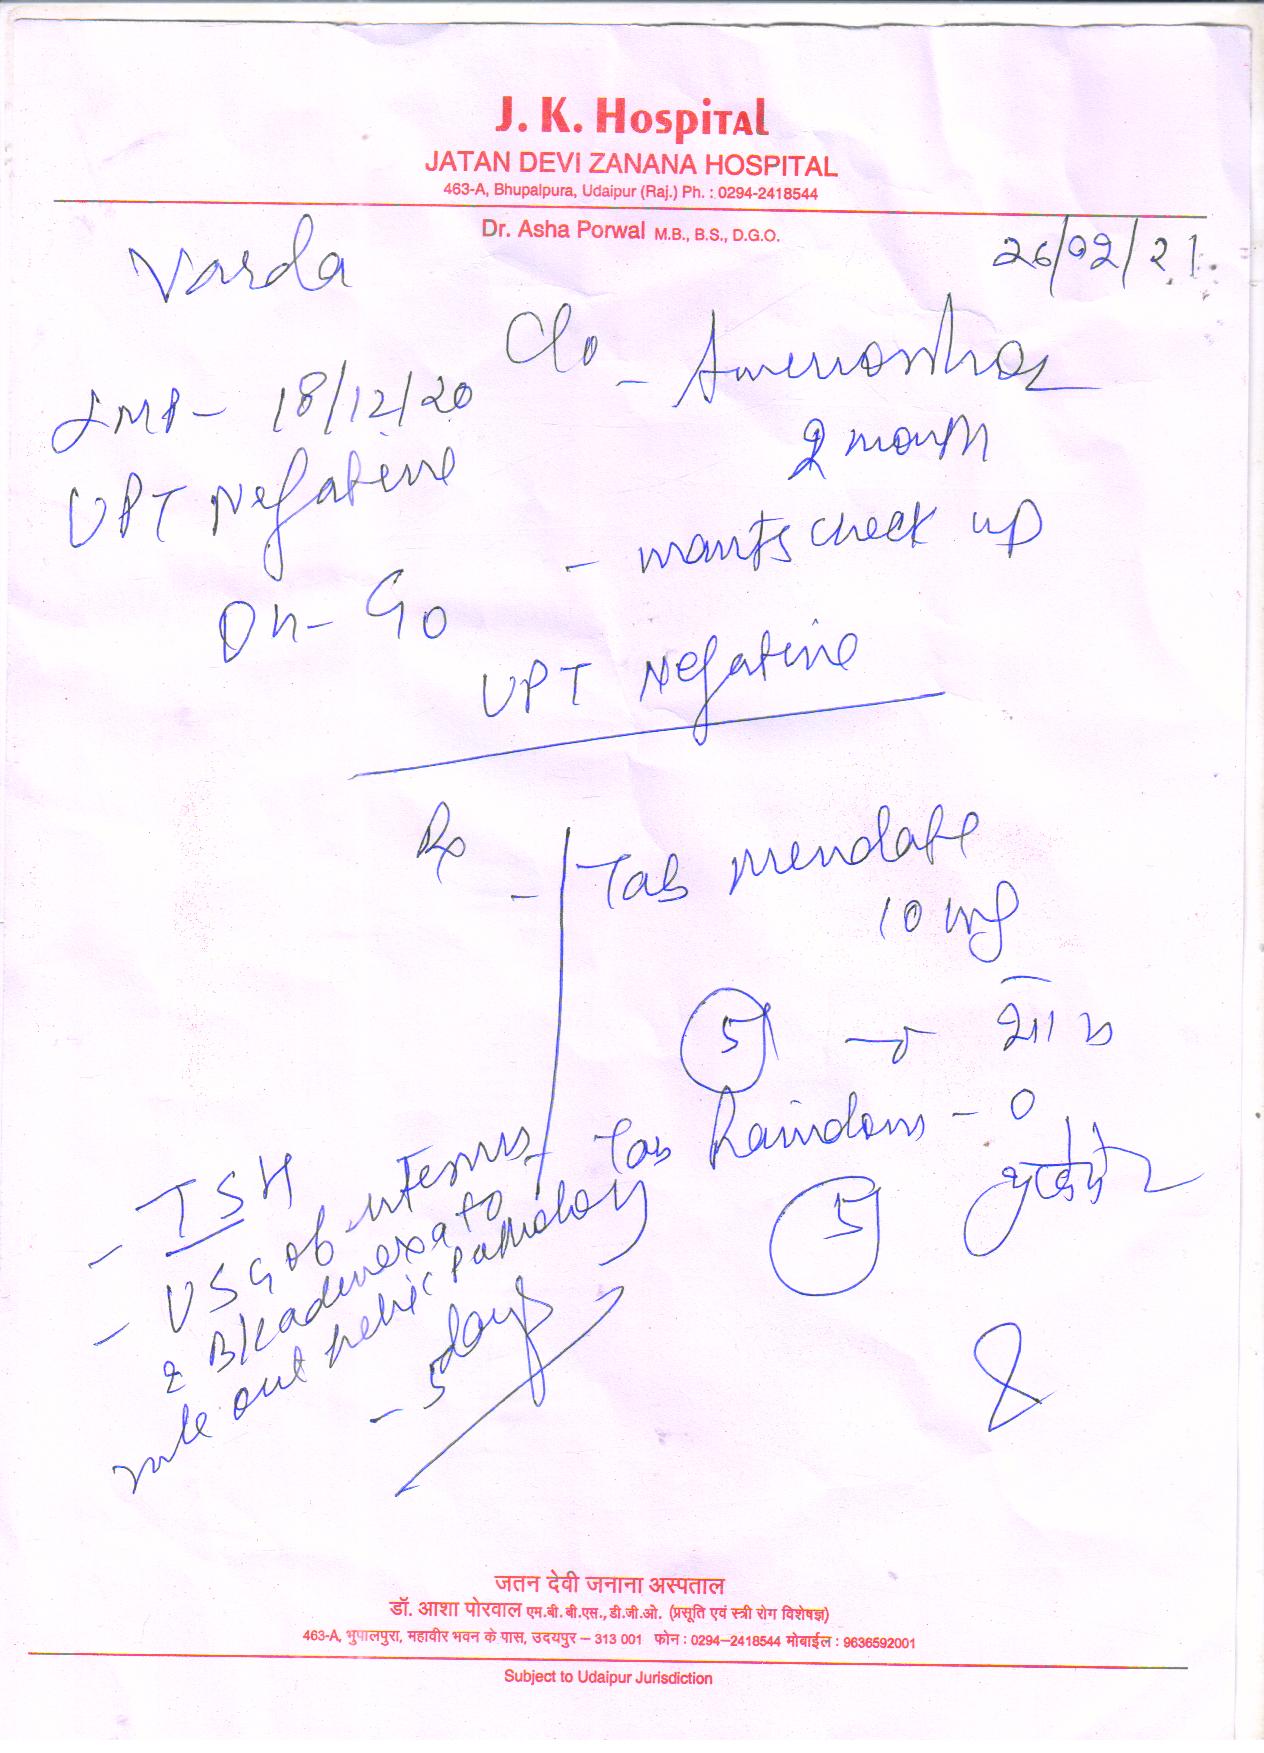 J. K. Hospital
JATAN DEVI ZANANA HOSPITAL
463-A, Bhupalpura, Udaipur (Raj.) Ph. : 0294-2418544
Dr. Asha Porwal M.B., B.S., D.G.O.
Varda
26/02/21
C/o - Amenorrhoea
2 month
LMP - 18/12/20
UPT Negative
- wants check up
OH - G0
UPT Negative
Rx
- Tab
10 mg
5 →
- Tab - 0
5
- TSH
- USG of uterus
& B/L adnexa to
rule out pelvic pathology
- 5 days
जतन देवी जनाना अस्पताल
डॉ. आशा पोरवाल एम.बी.बी.एस., डी.जी.ओ. (प्रसूति एवं स्त्री रोग विशेषज्ञ)
463-A, भुपालपुरा, महावीर भवन के पास, उदयपुर – 313 001 फोन : 0294–2418544 मोबाईल : 9636592001
Subject to Udaipur Jurisdiction